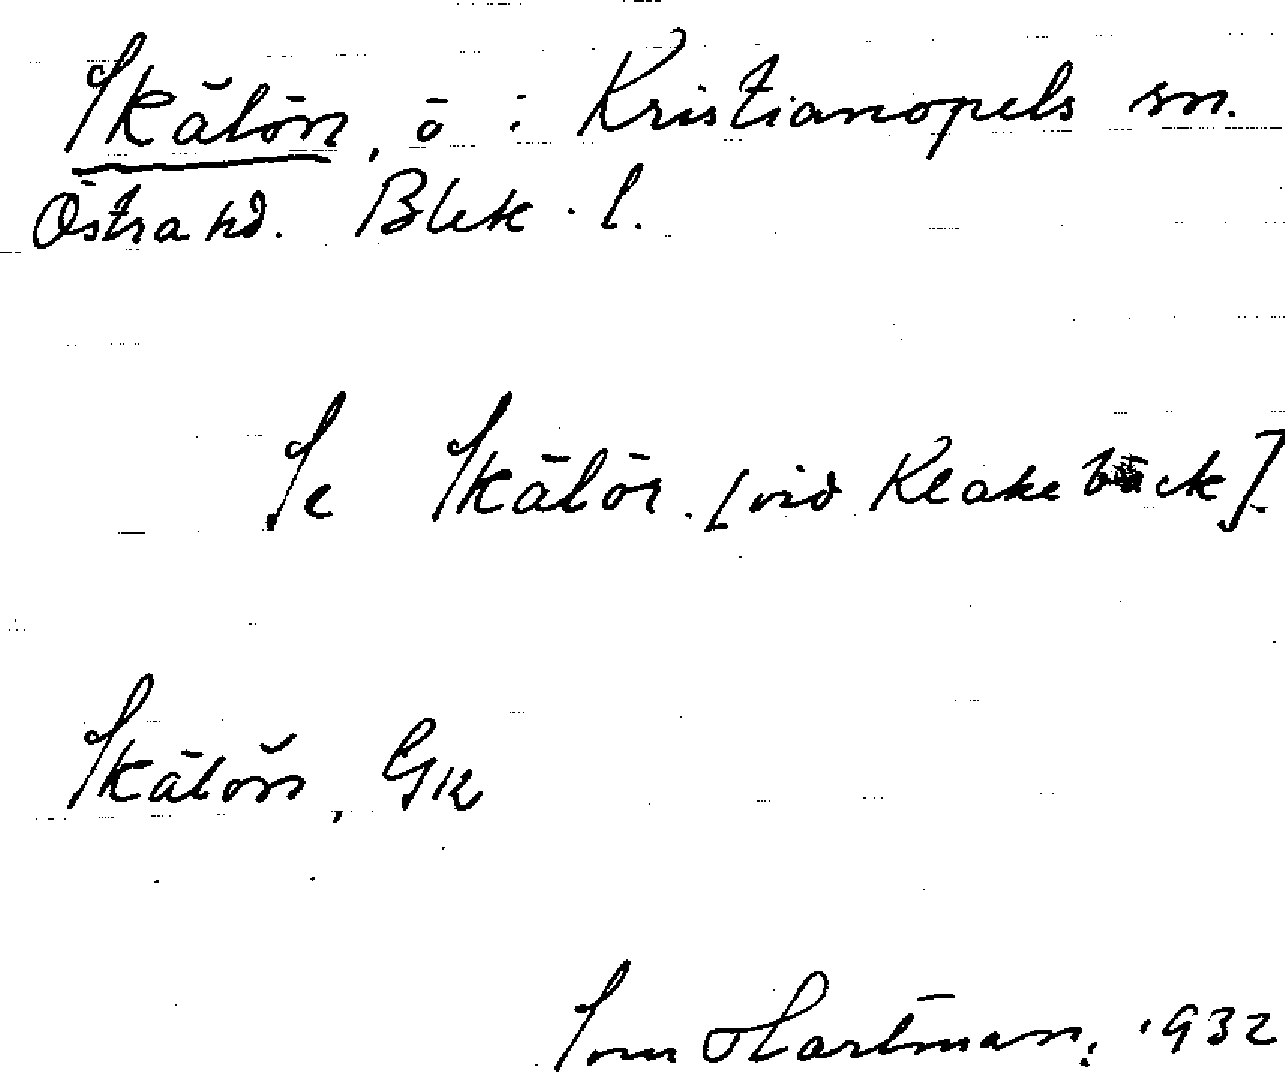 Skälön, ö i Kristianopels sn.
Östra hd. Blek. l.
Se Skälör. [vid Klakebäck].
Skälön, GK
Tom Hartman, 1932